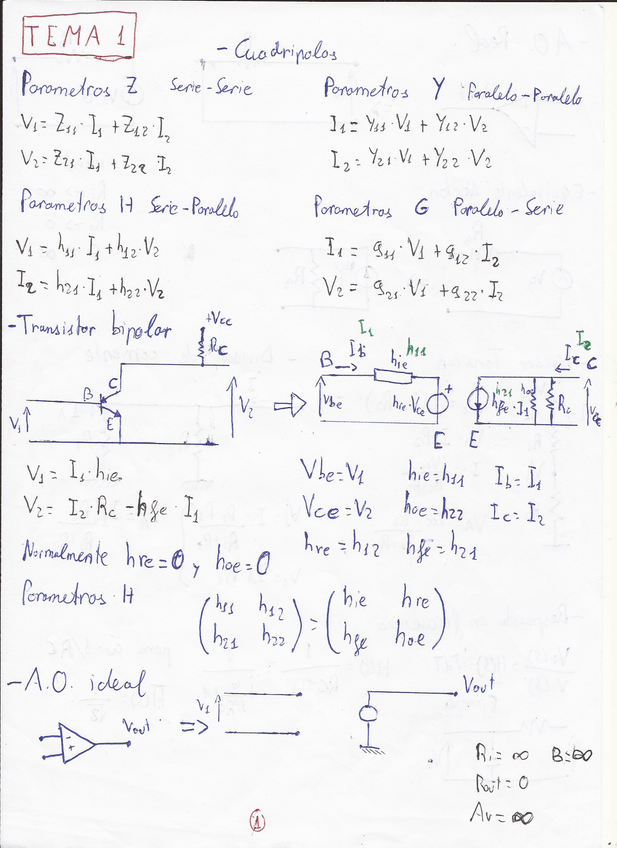 TEMA 1
- Cuadripolos
Parametros Z Serie-Serie
V1 = Z11·I1 + Z12·I2
V2 = Z21·I1 + Z22·I2
Parametros Y Paralelo-Paralelo
I1 = Y11·V1 + Y12·V2
I2 = Y21·V1 + Y22·V2
Parametros H Serie-Paralelo
V1 = h11·I1 + h12·V2
I2 = h21·I1 + h22·V2
Parametros G Paralelo-Serie
I1 = g11·V1 + g12·I2
V2 = g21·V1 + g22·I2
- Transistor bipolar
+Vcc
Rc
B
C
E
V1
V2
I1
B
Ib
hie
h11
Vbe
hie·Vce
+
E
E
h21
hfe·I1
hoe
Rc
I2
Ic
C
Vce
V1 = I1·hie
V2 = I2·Rc - hfe·I1
Vbe = V1 hie = h11 Ib = I1
Vce = V2 hoe = h22 Ic = I2
hre = h12 hfe = h21
Normalmente hre = 0 y hoe = 0
Parametros H
(h11 h12) = (hie hre)
(h21 h22) (hfe hoe)
- A.O. ideal
-
+
Vout
=>
V1
Vout
Ri = ∞ B = ∞
Rout = 0
Av = ∞
1